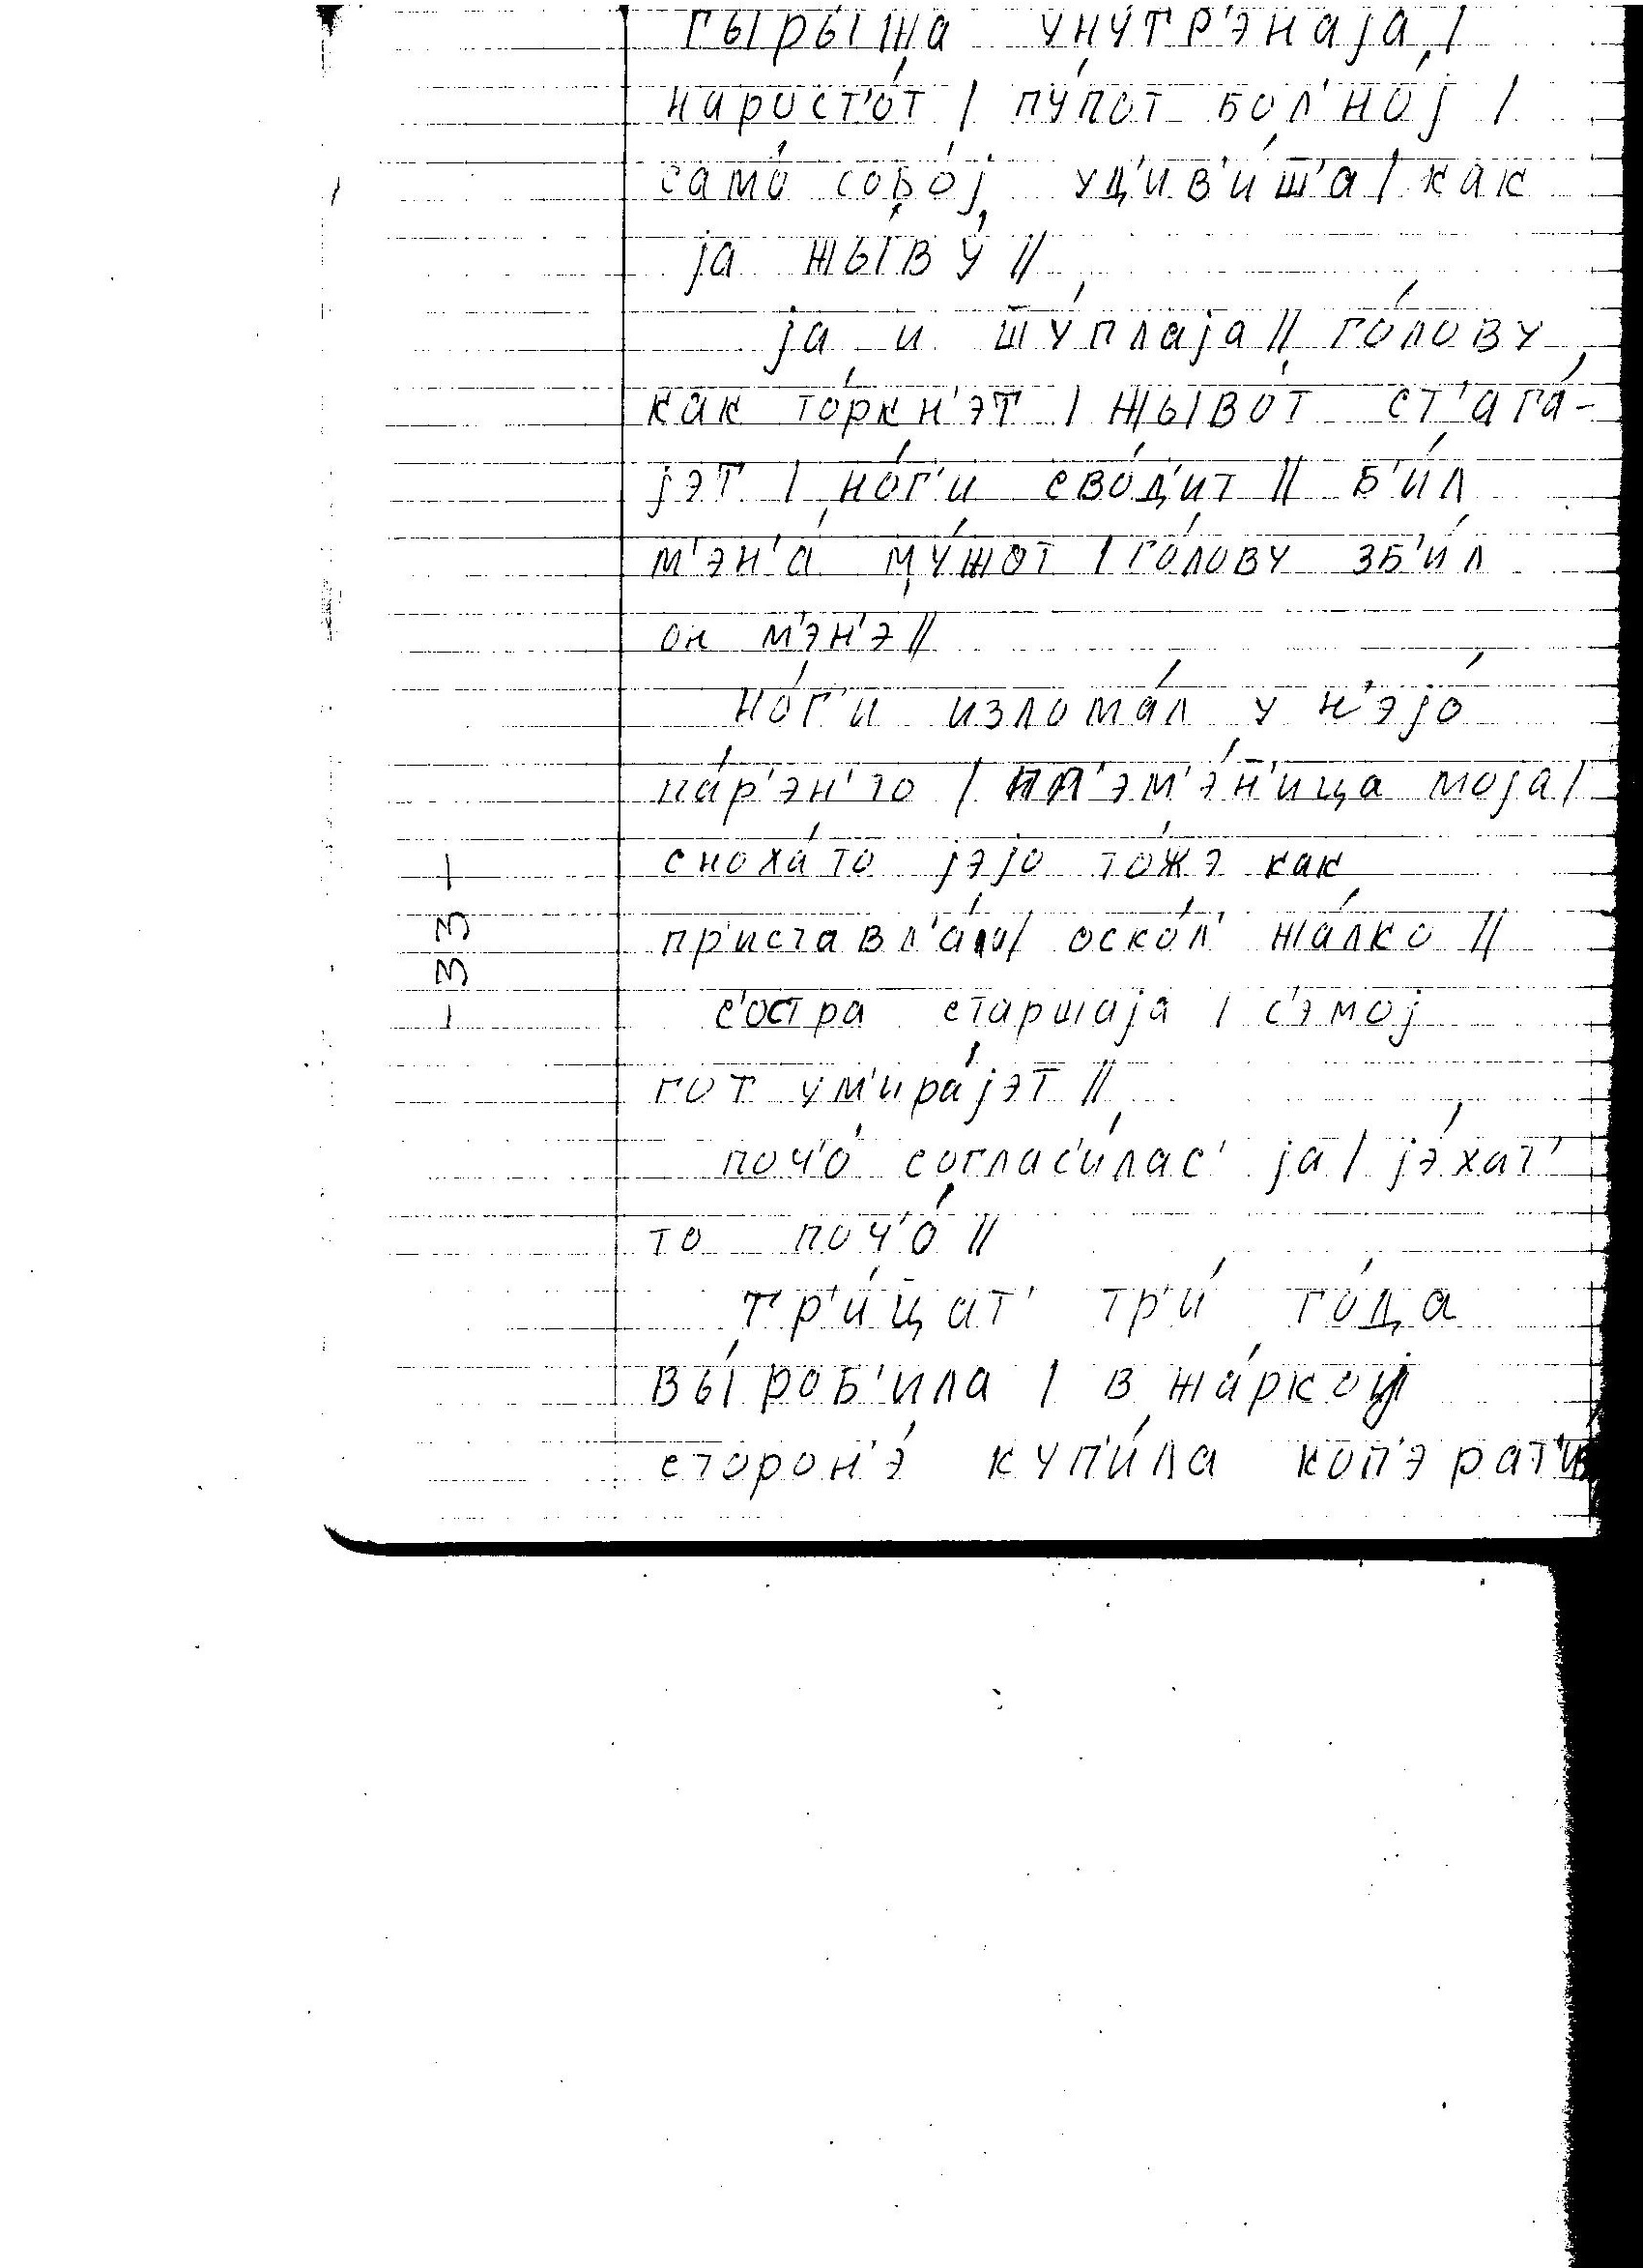 гыры́жа уну́тр'энаjа /
нарост'о́т / пу́пот бол'но́j /
само́ собо́j уд'ив'и́ш̄'а / как
jа жыву́ //
jа и ш̄у́плаjа // го́лову
как то́ркн'эт / жыво́т ст'ага́-
jэт / но́г'и сво́д'ит // б'и́л
м'эн'а́ му́жот / го́лову зб'и́л
он м'эн'э //
но́г'и излома́л у н'эjо́
па́р'эн'то / пл'эм'э́н̄'ица моjа /
сноха́то jэjо то́жэ как
пр'иставл'а́ла / оско́л' жа́лко //
с'остра старшаjа / с'эмоj
гот ум'ира́jэт //
поч'о́ соглас'и́лас' jа / jэ́хат'
то поч'о́ //
тр'и́ц̄ат' тр'и́ го́да
вы́роб'ила / в жа́ркоj
сторон'э́ куп'и́ла коп'эрат'ив
– 33 –